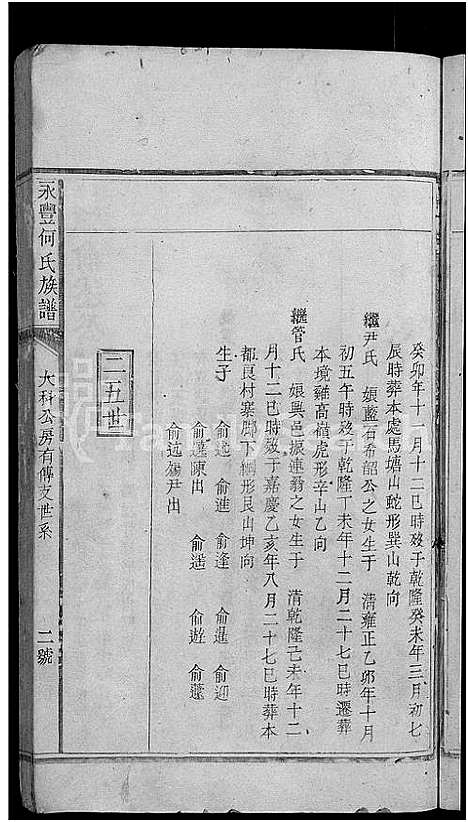 癸卯年十一月十二巳時歿于乾隆癸未年三月初七
辰時葬本處馬塘山蛇形巽山乾向
繼尹氏 娘藍石希韶公之女生于 清雍正乙卯年十月
初五午時歿于乾隆丁未年十二月二十七巳時遷葬
本境雞髙嶺虎形辛山乙向
繼管氏 娘興邑振連翁之女生于 清乾隆己未年十二
月十二巳時歿于嘉慶乙亥年八月二十七巳時葬本
都良村寨鄔下側形艮山坤向
生子 俞遠 俞進 俞逢 俞暹 俞迎
俞邁陳出 俞遥 俞遊 俞蘧
俞远繼尹出
二五世
永豐何氏族譜
大科公房有傳支世系
二號